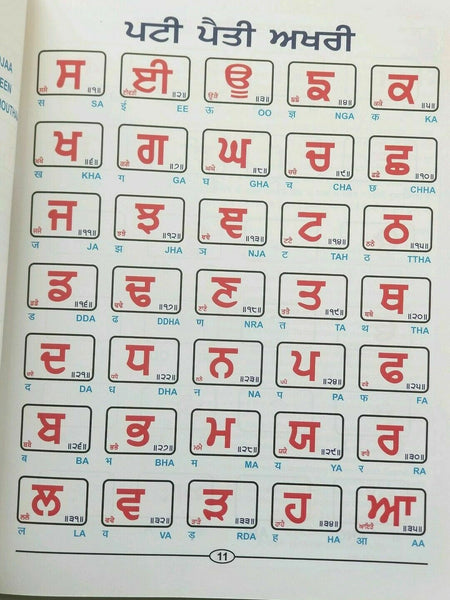 ਪਟੀ ਪੈਤੀ ਅਖਰੀ
ਸ ॥੧॥ ਈ ॥੨॥ ਊ ॥੩॥ ਙ ॥੪॥ ਕ ॥੫॥
स SA ई EE ऊ OO ज्ञ NGA क KA
ਖ ॥੬॥ ਗ ॥੭॥ ਘ ॥੮॥ ਚ ॥੯॥ ਛ ॥੧੦॥
ख KHA ग GA घ GHA च CHA छ CHHA
ਜ ॥੧੧॥ ਝ ॥੧੨॥ ਞ ॥੧੩॥ ਟ ॥੧੪॥ ਠ ॥੧੫॥
ज JA झ JHA ञ NJA ट TAH ठ TTHA
ਡ ॥੧੬॥ ਢ ॥੧੭॥ ਣ ॥੧੮॥ ਤ ॥੧੯॥ ਥ ॥੨੦॥
ड DDA ढ DDHA ण NRA त TA थ THA
ਦ ॥੨੧॥ ਧ ॥੨੨॥ ਨ ॥੨੩॥ ਪ ॥੨੪॥ ਫ ॥੨੫॥
द DA ध DHA न NA प PA फ FA
ਬ ॥੨੬॥ ਭ ॥੨੭॥ ਮ ॥੨੮॥ ਯ ॥੨੯॥ ਰ ॥੩੦॥
ब BA भ BHA म MA य YA र RA
ਲ ॥੩੧॥ ਵ ॥੩੨॥ ੜ ॥੩੩॥ ਹ ॥੩੪॥ ਆ ॥੩੫॥
ल LA व VA ड़ RDA ह HA आ AA
11